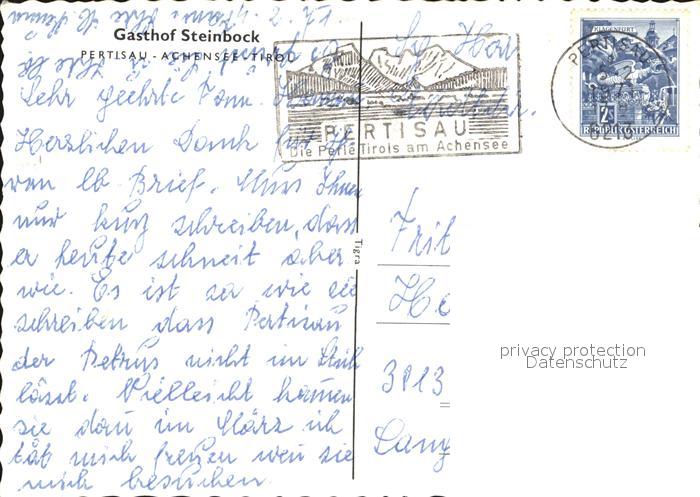 Gasthof Steinbock
PERTISAU - ACHENSEE - TIROL
KLAGENFURT
PERTISAU
2 S
REPUBLIK ÖSTERREICH
PERTISAU
Die Perle Tirols am Achensee
Sehr geehrte Fam.
Herzlichen Dank für
den lb Brief. Muss Ihnen
nur kurz schreiben, dass
er heute schneit aber
wie. Es ist so wie sie
schreiben dass Pertisau
der Petrus nicht im Stich
lässt. Vielleicht kommen
sie dan im März ich
tät mich freuen wen sie
mich besuchen.
Tigra
Frit
He
3813
Lang
privacy protection
Datenschutz